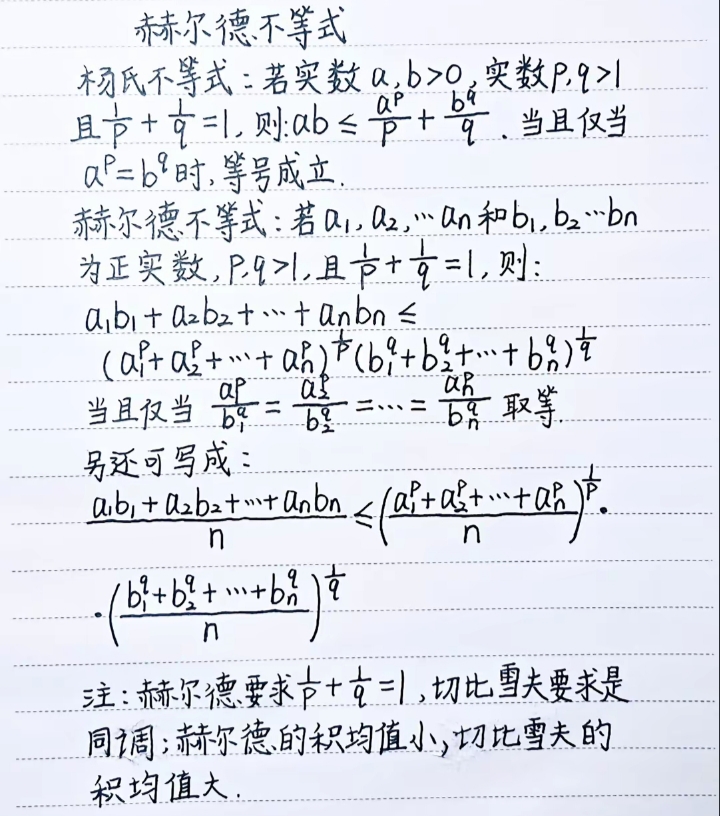 赫尔德不等式
杨氏不等式：若实数 a,b>0,实数p,q>1
且 1/p + 1/q =1, 则:ab ≤ a^p/p + b^q/q . 当且仅当
a^p=b^q时,等号成立.
赫尔德不等式：若a₁,a₂,…an和b₁,b₂…bn
为正实数,p,q>1,且 1/p + 1/q =1,则：
a₁b₁+a₂b₂+…+anbn ≤
(a₁^p+a₂^p+…+an^p)^(1/p)(b₁^q+b₂^q+…+bn^q)^(1/q)
当且仅当 a₁^p/b₁^q = a₂^p/b₂^q =…= an^p/bn^q 取等.
另还可写成：
(a₁b₁+a₂b₂+…+anbn)/n ≤ ((a₁^p+a₂^p+…+an^p)/n)^(1/p)·
·((b₁^q+b₂^q+…+bn^q)/n)^(1/q)
注：赫尔德要求 1/p + 1/q =1,切比雪夫要求是
同调;赫尔德的积均值小,切比雪夫的
积均值大.